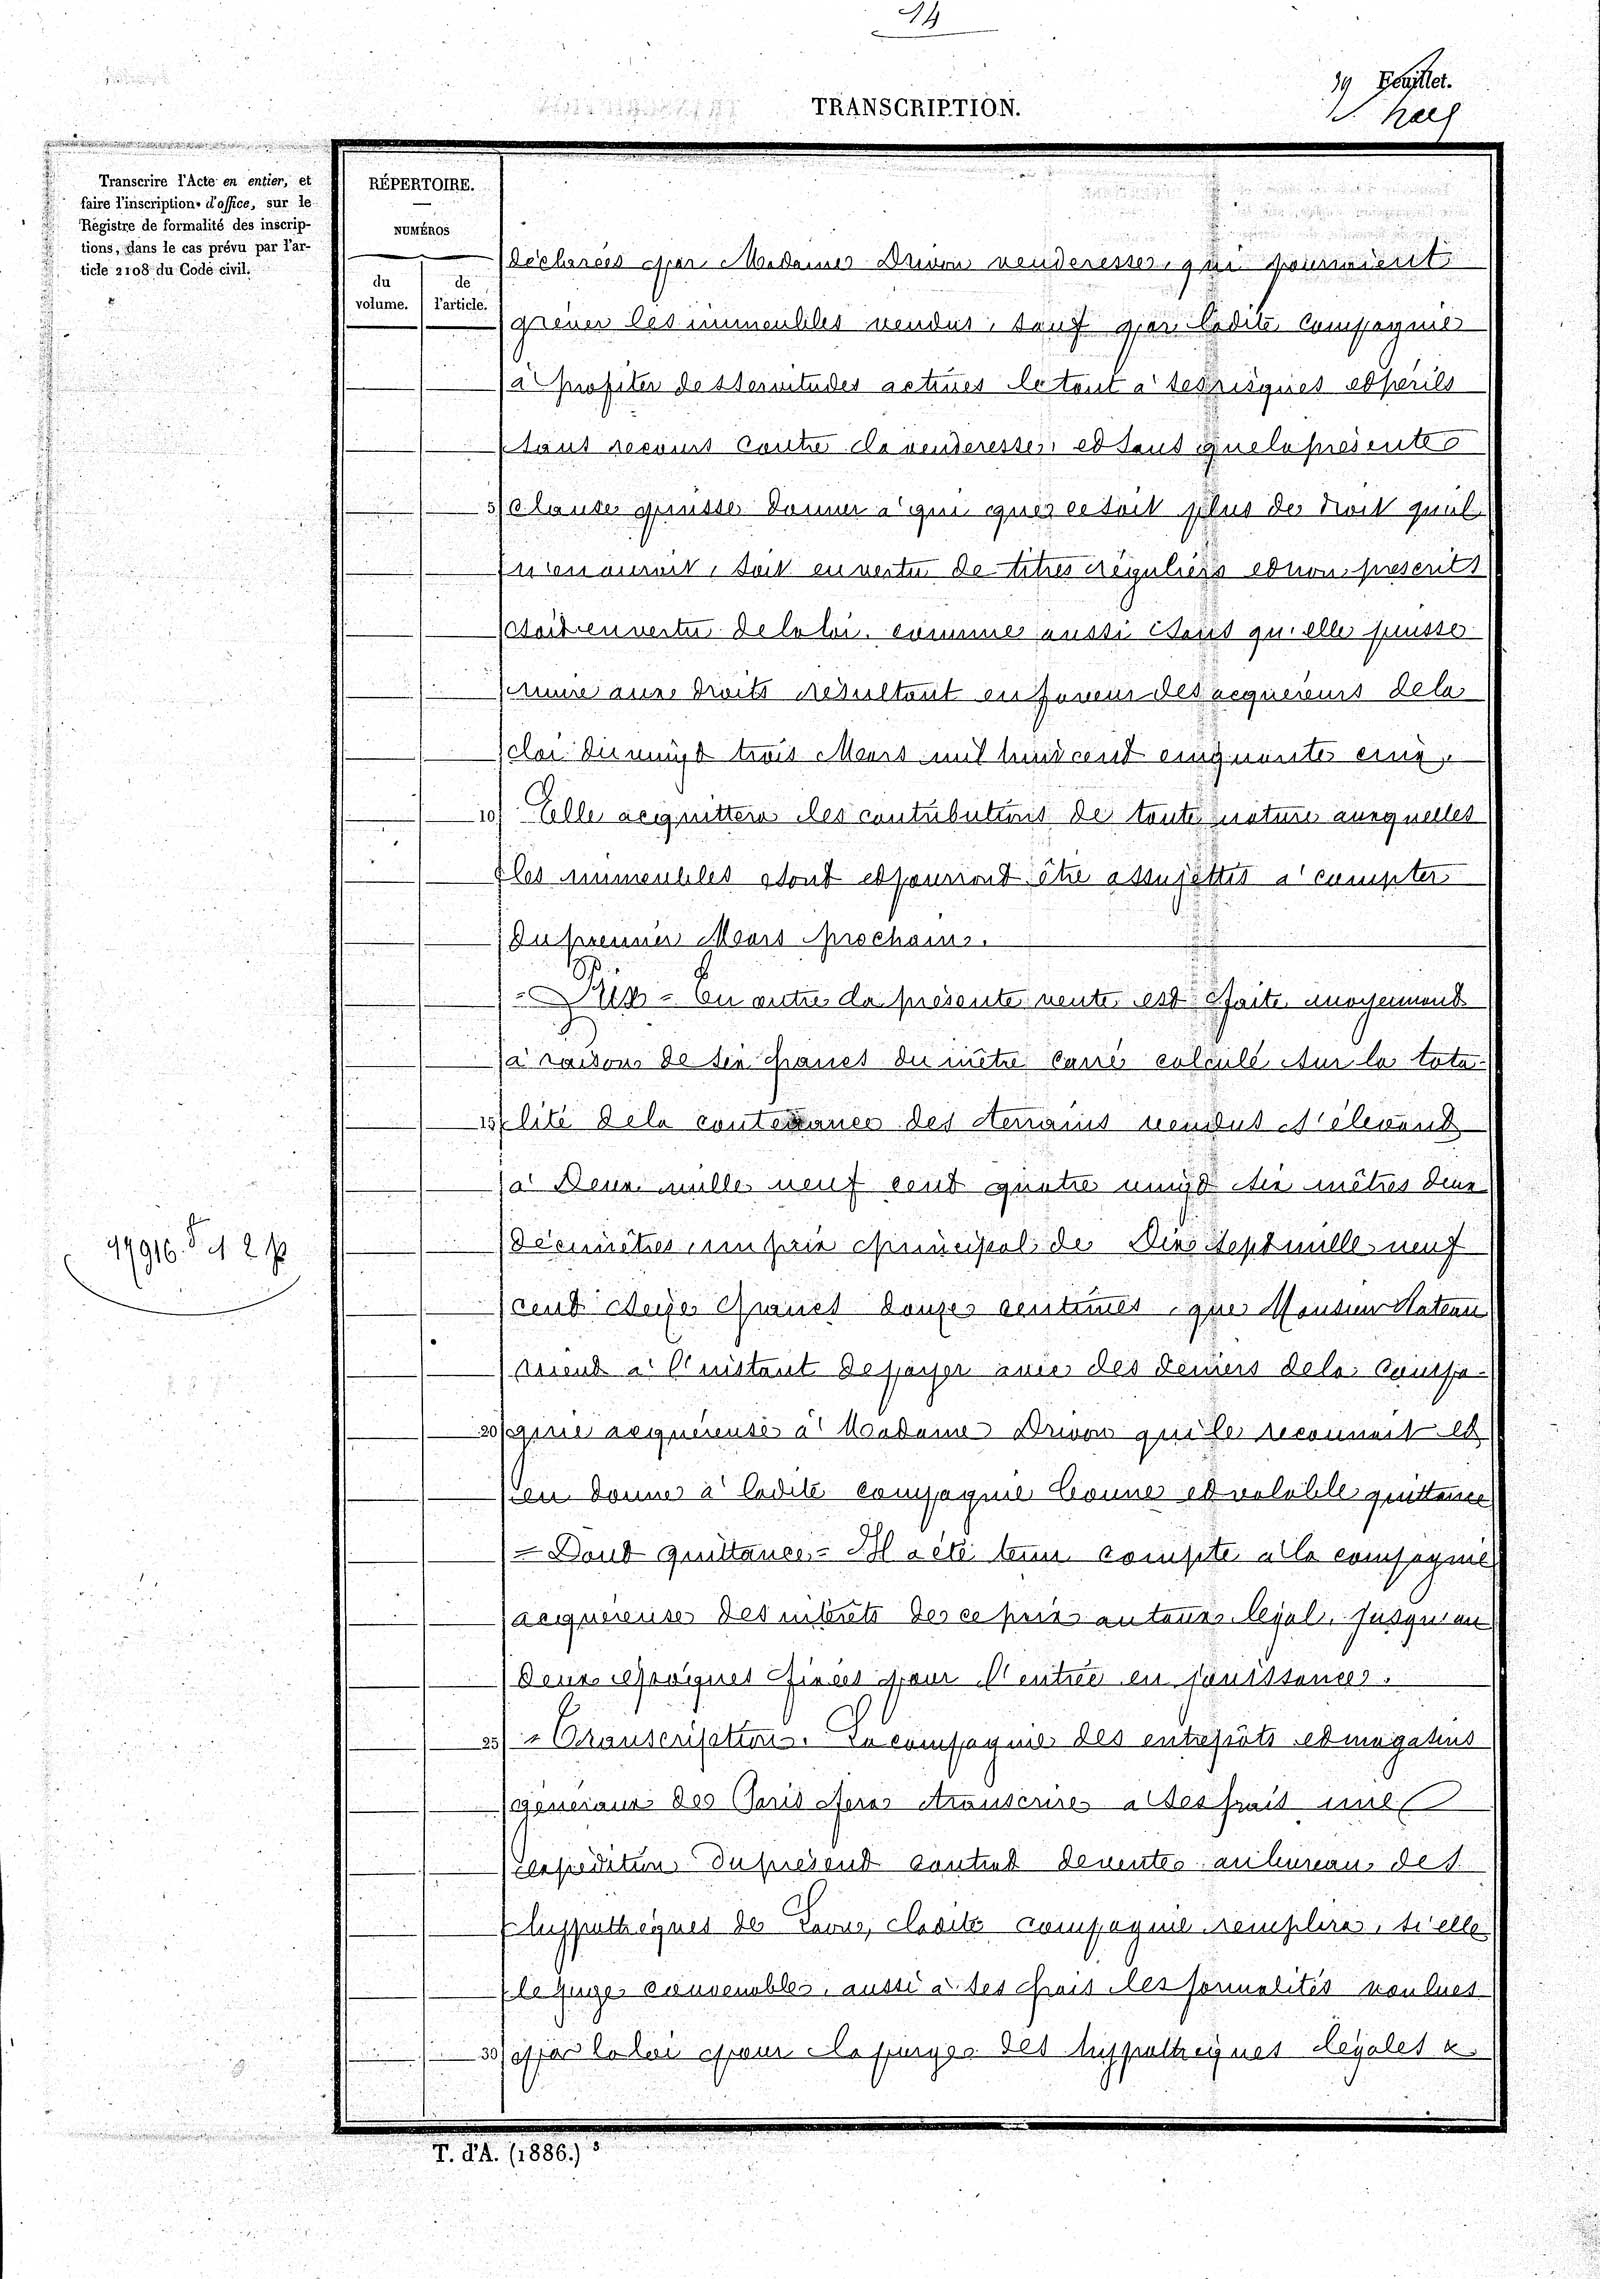 14
19 Feuillet.
TRANSCRIPTION.
Transcrire l'Acte en entier, et
faire l'inscription d'office, sur le
Registre de formalité des inscrip-
tions, dans le cas prévu par l'ar-
ticle 2108 du Code civil.
RÉPERTOIRE.
NUMÉROS
du volume.
de l'article.
déclarées par Madame Drivon venderesse, qui pourraient
grever les immeubles vendus, sauf par ladite compagnie
à profiter des servitudes actives le tout à ses risques et périls
sans recours contre la venderesse, et sans que la présente
5 clause puisse donner à qui que ce soit plus de droit qu'il
n'en aurait, soit en vertu de titres réguliers et non prescrits
soit en vertu de la loi, comme aussi sans qu'elle puisse
nuire aux droits résultant en faveur des acquéreurs de la
loi du vingt trois Mars mil huit cent cinquante cinq.
10 Elle acquittera les contributions de toute nature auxquelles
les immeubles sont et pourront être assujettis à compter
du premier Mars prochain.
= Prix = En outre la présente vente est faite moyennant
à raison de six francs du mètre carré calculé sur la tota-
15 lité de la contenance des terrains vendus s'élevant
à Deux mille neuf cent quatre vingt six mètres deux
décimètres un prix principal de Dix sept mille neuf
cent seize francs douze centimes, que Monsieur Hateau
vient à l'instant de payer avec des deniers de la Compa-
20 gnie acquéreuse à Madame Drivon qui le reconnait et
en donne à ladite compagnie bonne et valable quittance
= Dont quittance = Il a été tenu compte à la compagnie
acquéreuse des intérêts de ce prix au taux légal, jusqu'au
deux époques fixées pour l'entrée en jouissance.
25 = Transcription. La compagnie des entrepôts et magasins
généraux de Paris fera transcrire à ses frais une
expédition du présent contrat de vente au bureau des
hypothèques de , ladite compagnie remplira, si elle
le juge convenable, aussi à ses frais les formalités voulues
30 par la loi pour la purge des hypothèques légales &
17916. f 12
T. d'A. (1886.)